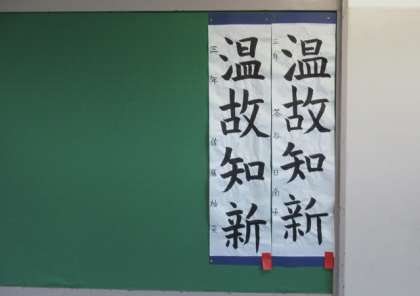 温故知新
三年 佐藤
温故知新
三年